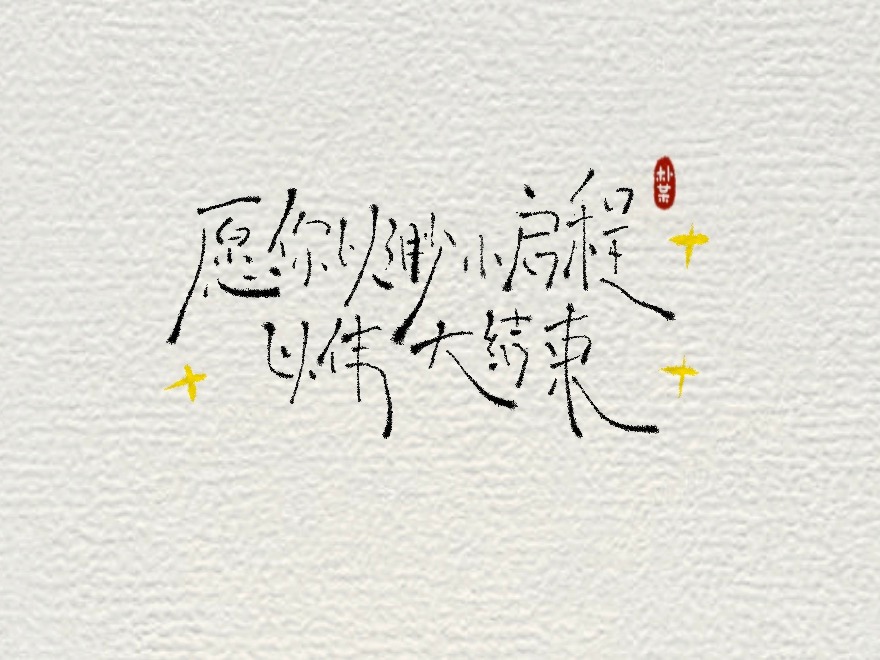 愿你以渺小启程
以伟大结束
朴某